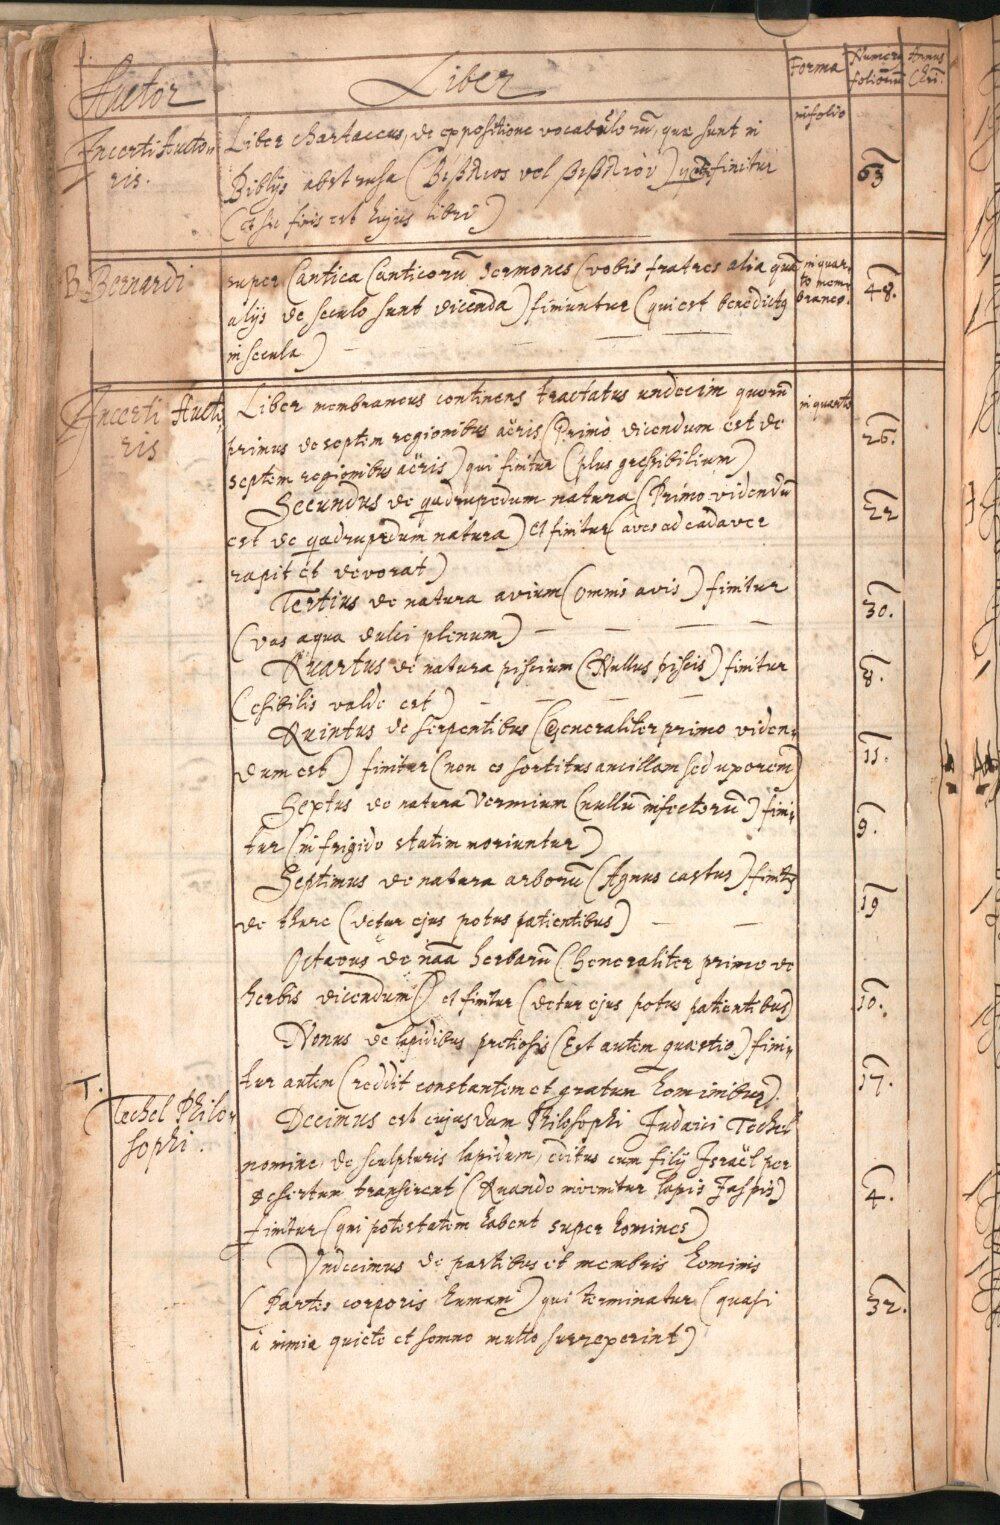 Auctor Liber Forma Numerꝰ foliorū Annus Chri.
Incerti Aucto- Liber chartaceus, de expositione vocabulorū, quæ sunt in in folio
ris. Biblijs abstrusa (βιβλιος vel βιβλιον) finitur 63
(et sic finis est hujus libri)
B. Bernardi super Cantica Canticorū sermones (vobis fratres alia quæ in quar-
alijs de seculo sunt dicenda) finiuntur (qui est benedictꝰ to mem- 48.
in secula) braneo.
Incerti Aucto- Liber membraneus continens tractatus undecim quorū in quarto
ris primus de septem regionibus aëris (Primo dicendum est de 26.
septem regionibus aëris) qui finitur (plus gressibilium)
Secundus de quadrupedum natura (Primo videndū 22
est de quadrupedum natura) et finitur (aves ad cadaver
rapit et devorat)
Tertius de natura avium (omnis avis) finitur 30.
(vas aqua dulci plenum)
Quartus de natura piscium (Nullus piscis) finitur 8.
(esibilis valde est)
Quintus de serpentibus (Generaliter primo viden- 11.
dum est) finitur (non es sortitus ancillam sed uxorem)
Sextus de natura Vermium (nullū infectorū) fini- 9.
tur (in frigido statim moriuntur)
Septimus de natura arborū (Agnus castus) finitꝰ 19
de thure (detur ejus potus patientibus)
Octavus de naā herbarū (Generaliter primo de
herbis dicendum) et finitur (detur ejus potus patientibus) 10.
Nonus de lapidibus pretiosis (Est autem quæstio) fini-
T. tur autem (reddit constantem et gratum hominibus). 17.
Techel Philo- Decimus est cujusdam Philosophi Judaici Techel
sophi. nomine, de sculpturis lapidum, editus cum filij Israël per
desertum transirent (Quando invenitur lapis Jaspis) 4.
finitur (qui potestatem habent super homines)
Vndecimus de partibus et membris hominis
(Partes corporis humani) qui terminatur (quasi 32.
à nimia quiete et somno multo surrexerint)